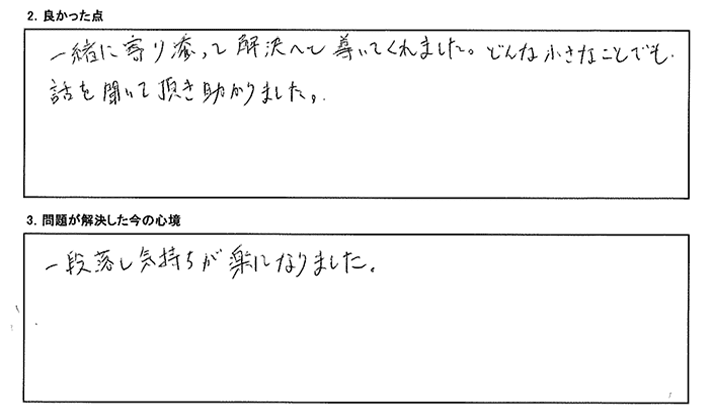 2. 良かった点
一緒に寄り添って解決へと導いてくれました。どんな小さなことでも
話を聞いて頂き助かりました。
3. 問題が解決した今の心境
一段落し気持ちが楽になりました。